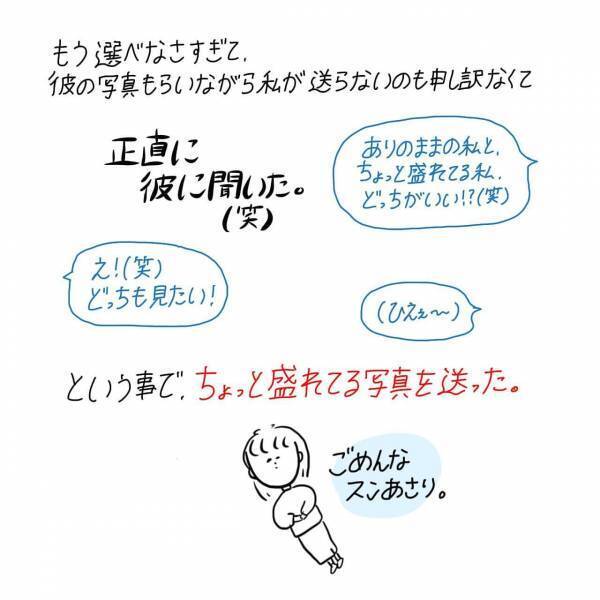 もう選べなさすぎて、
彼の写真もらいながら私が送らないのも申し訳なくて
正直に
彼に聞いた。
(笑)
ありのままの私と、
ちょっと盛れてる私、
どっちがいい!?(笑)
え!(笑)
どっちも見たい!
(ひえぇ〜)
という事で、ちょっと盛れてる写真を送った。
ごめんな
スンあさり。